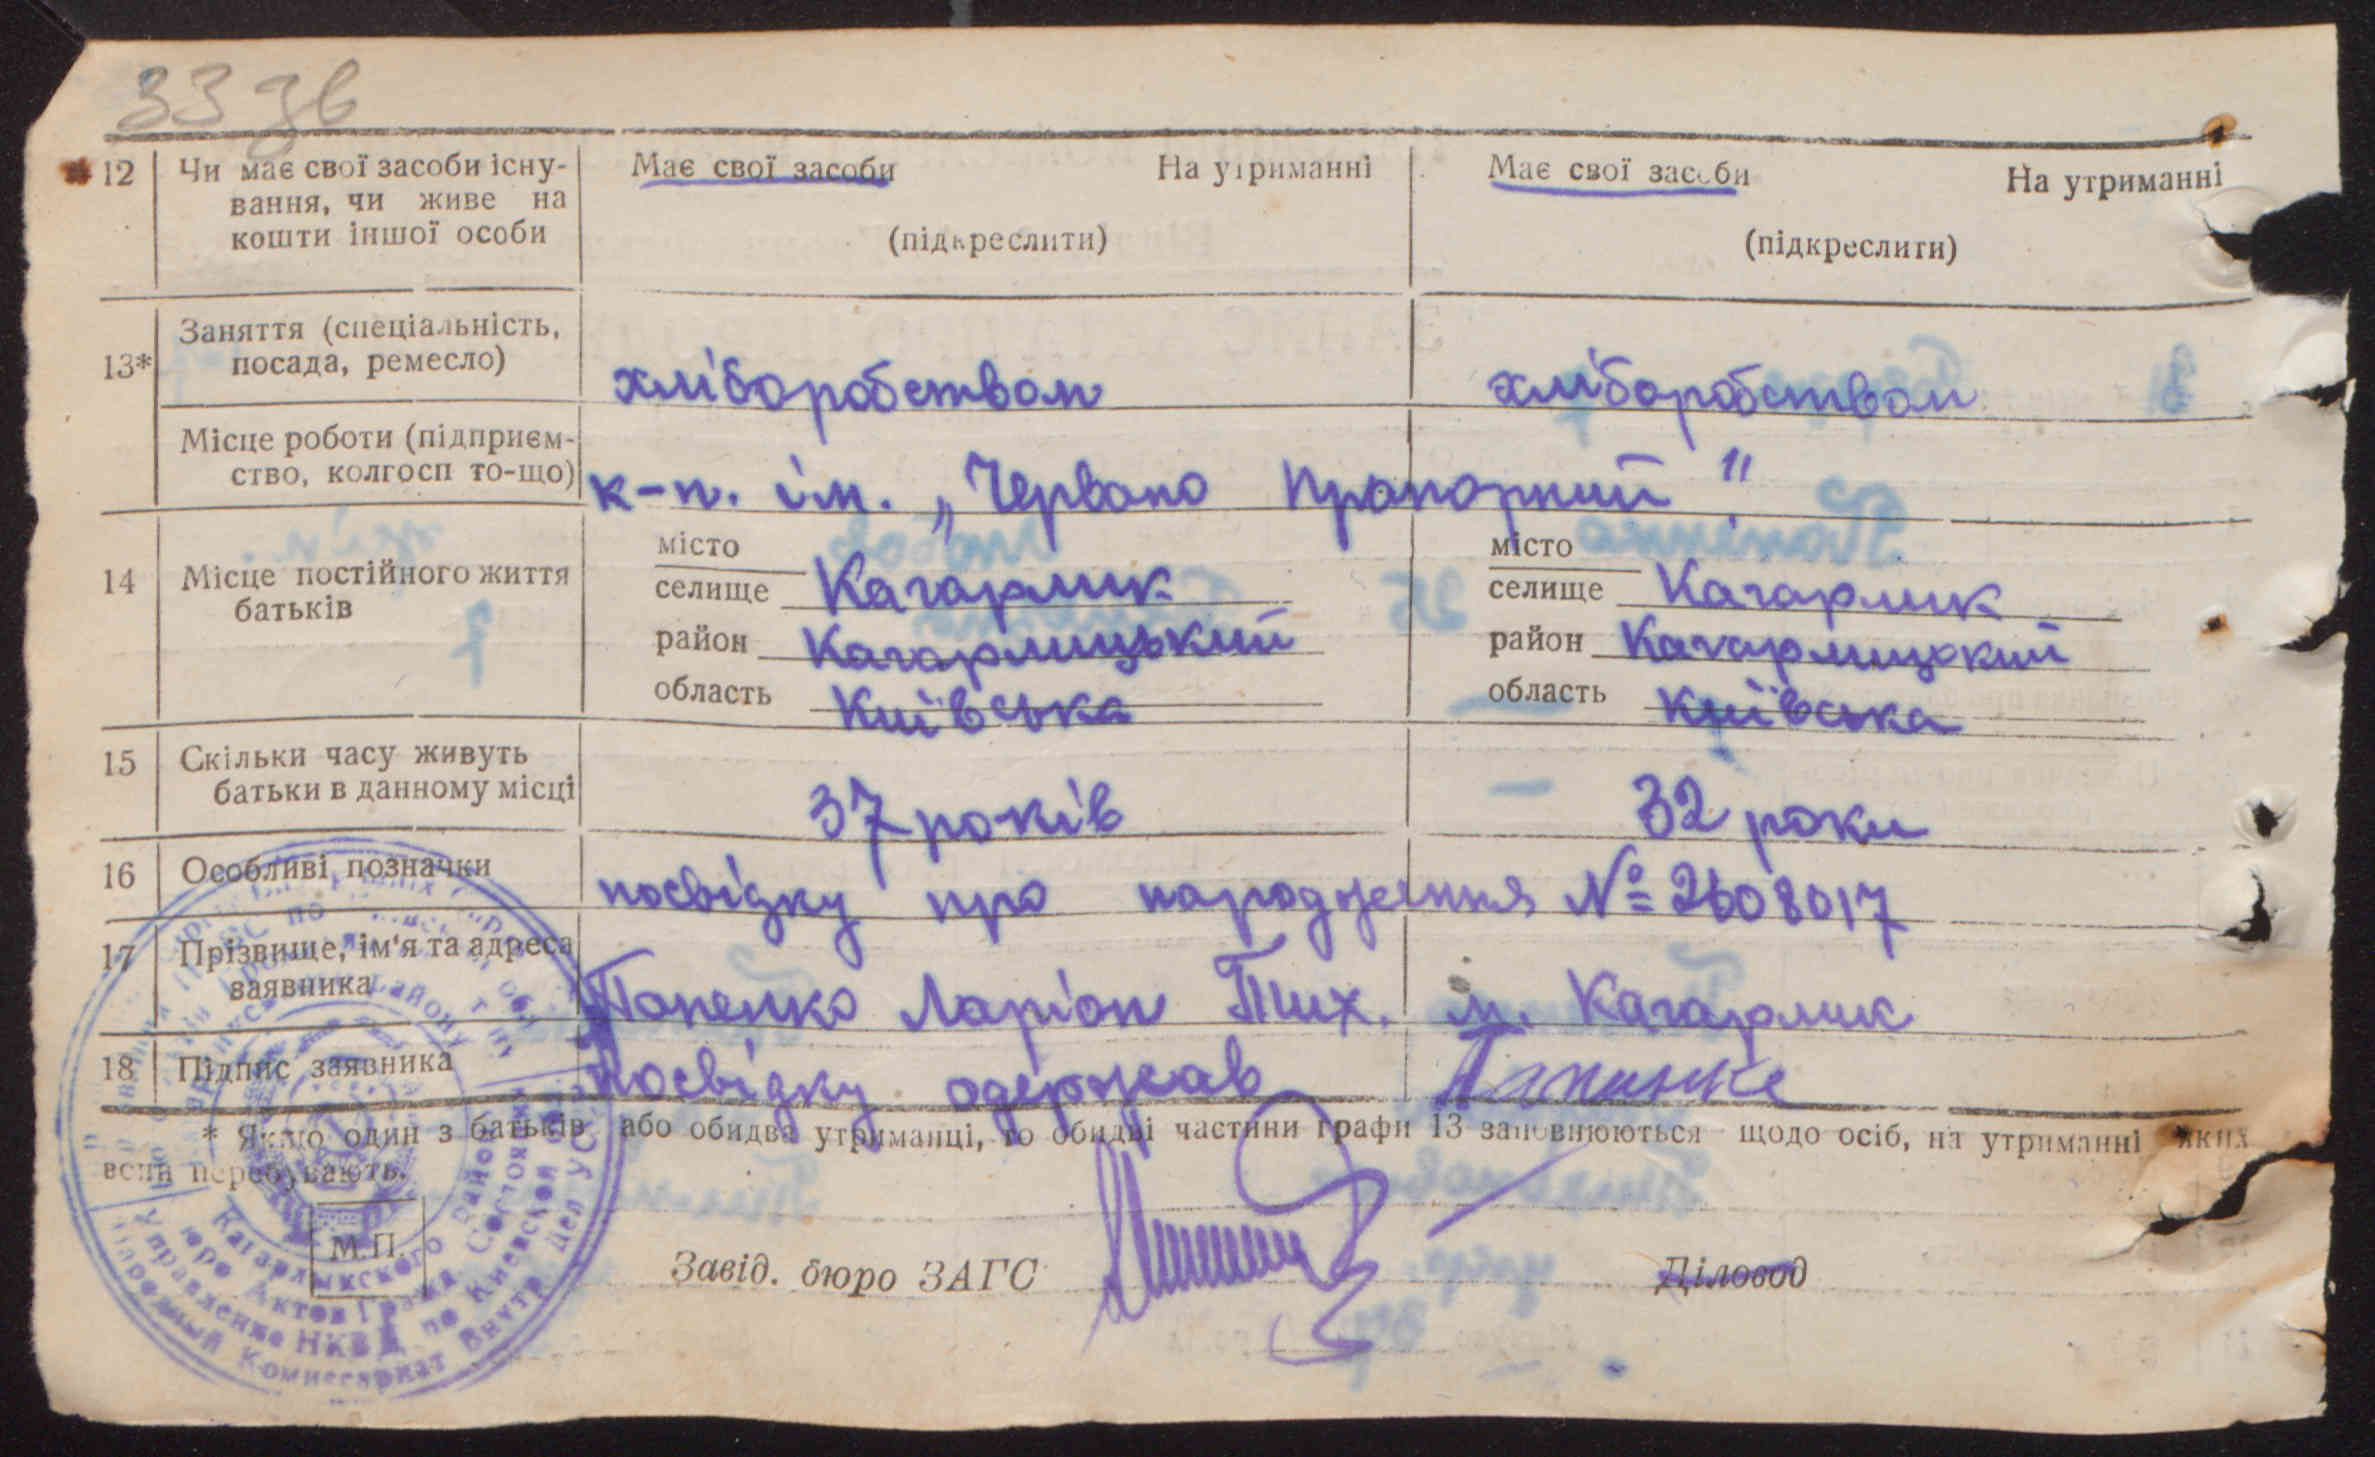 33 зв
12 Чи має свої засоби існу- Має свої засоби На утриманні Має свої засоби На утриманні
вання, чи живе на
кошти іншої особи (підкреслити) (підкреслити)
Заняття (спеціальність,
13* посада, ремесло) хліборобством хліборобством
Місце роботи (підприєм-
ство, колгосп то-що) к-п. ім. „Червоно Прапорний"
місто місто
14 Місце постійного життя селище Кагарлик селище Кагарлик
батьків район Кагарлицький район Кагарлицький
область Київська область Київська
15 Скільки часу живуть
батьки в данному місці 37 років 32 роки
16 Особливі позначки посвідку про народження № 2608017
17 Прізвище, ім'я та адреса
заявника Папенко Ларіон Тих. м. Кагарлик
18 Підпис заявника посвідку одержав
* Якщо один з батьків або обидва утриманці, то обидві частини графи 13 заповнюються щодо осіб, на утриманні яких
вони перебувають.
М.П.
Завід. бюро ЗАГС Діловод
Кагарлыкского района
Бюро Актов Гражд. Состояния
Управление НКВД по Киевской обл.
Народный Комиссариат Внутр. Дел УССР